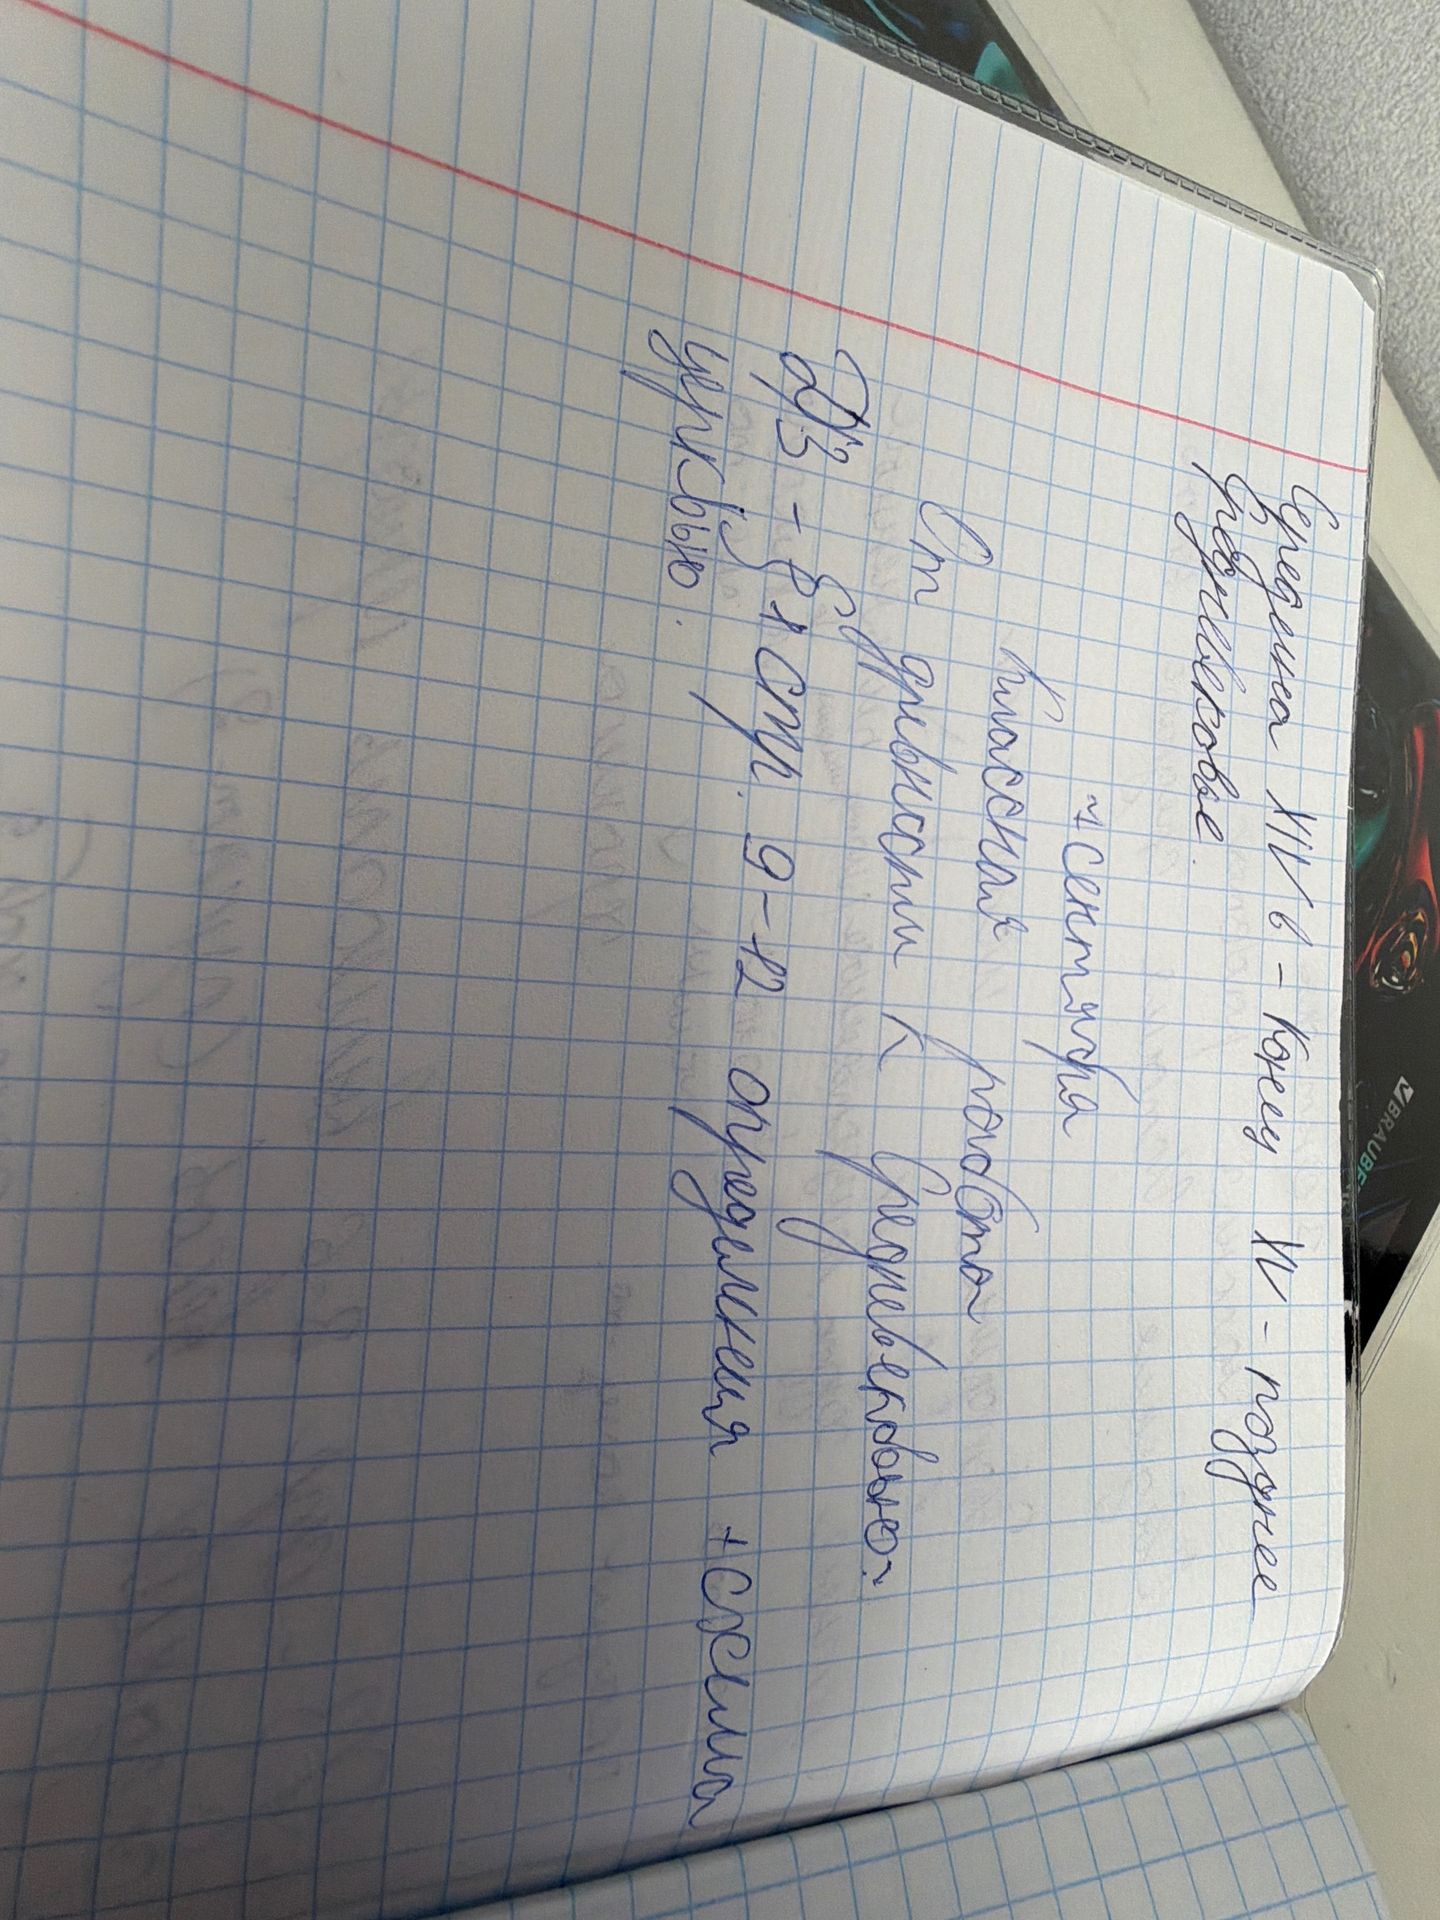 Середина XIV в - конец XV - позднее
Средневековье.
~1 сентября
Классная работа
От древности к Средневековью:
ДЗ - §1 стр. 9-12 определения + схема
церковью.
BRAUBE